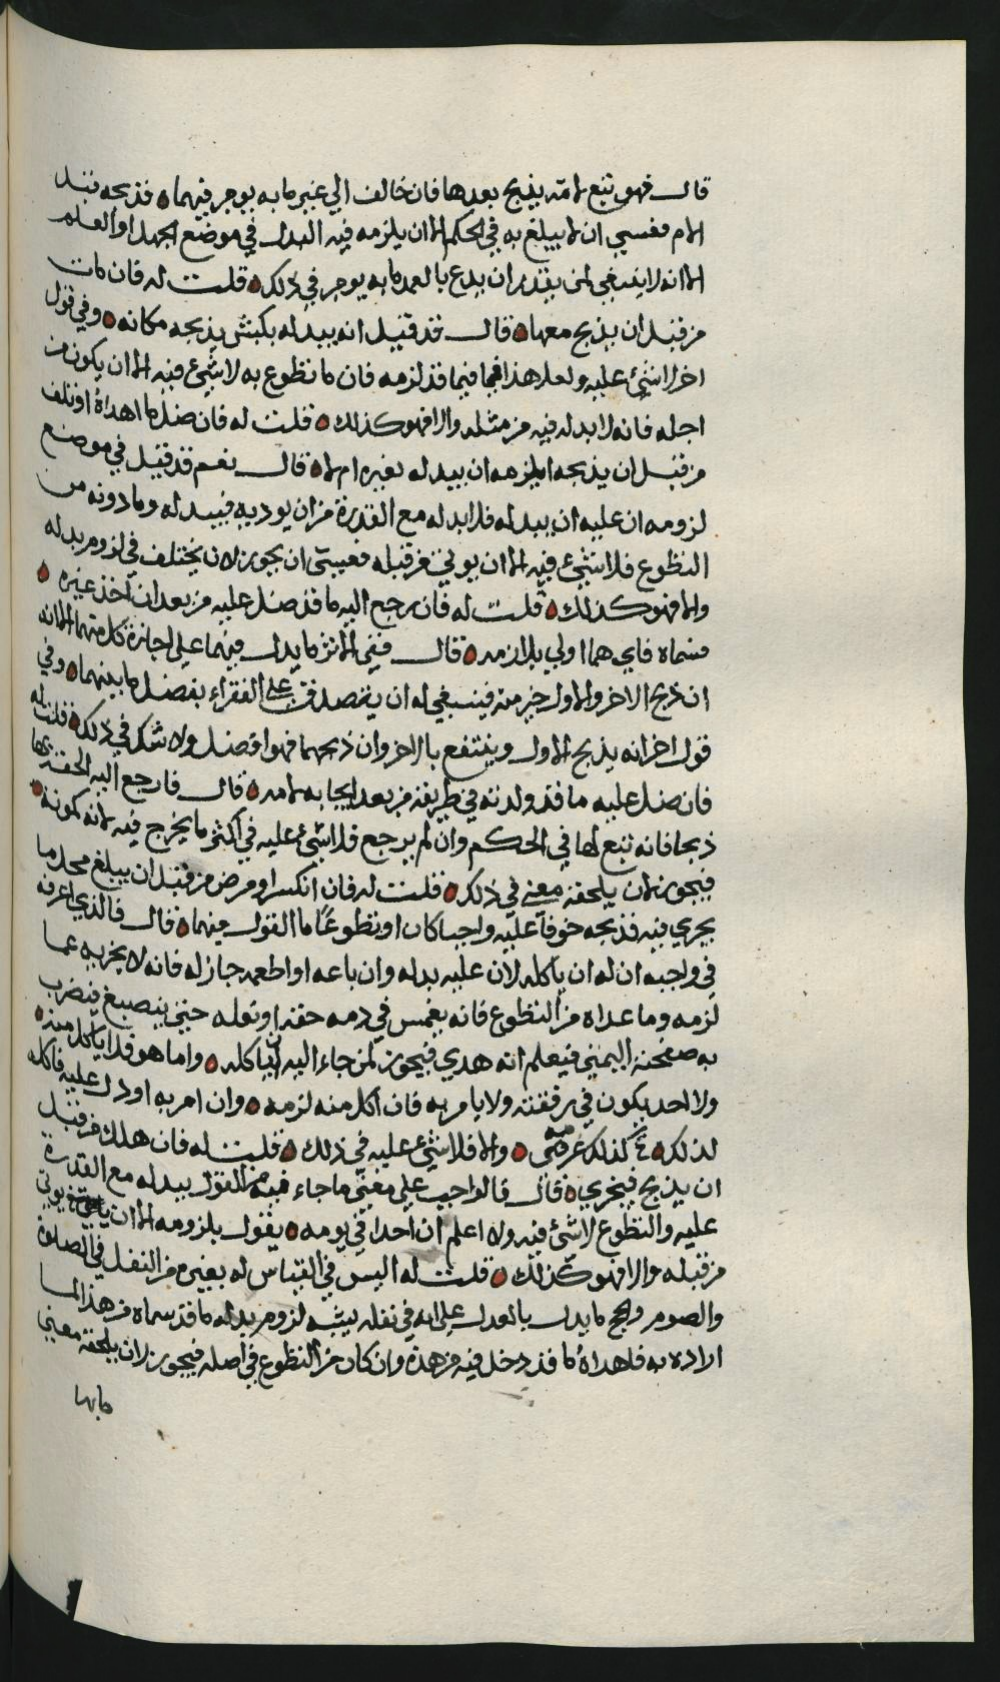 قال فهو تبع لامه يذبح بعدها فان خالف الي غير ما به يومر فيهما فذبحه قبل
الام فعسي ان لا يبلغ به في الحكم الا ان يلزمه فيه البدل في موضع الجهل او العلم
الا انه لا ينبغي لمن يقدر ان يدع بالعمد ما به يومر في ذلك قلت له فان مات
من قبل ان يذبح معها قال قد قيل انه يبدله بكبش يذبحه مكانه وفي قول
اخر لا شيء عليه ولعل هذا فيما قد لزمه فان ما تطوع به لا شيء فيه الا ان يكون من
اجله فانه لا بد له فيه من مثله والا فهو كذلك قلت له فان ضل ما اهداه او تلف
من قبل ان يذبحه ايلزمه ان يبدله بغيره ام لا قال نعم قد قيل في موضع
لزومه ان عليه ان يبدله فلا بد له مع القدرة من ان يوديه فيبدله وما دونه من
التطوع فلا شيء فيه الا ان يوتي من قبله فعسي ان يجوز لان يختلف في لزوم بدله
والا فهو كذلك قلت له فان رجع اليه ما قد ضل عليه من بعد ان اخذ غيره
فسماه فاي هما اولي بلازمه قال ففي الاثر ما يدل فيهما علي اجازة كل منهما الا انه
ان ذبح الاخر والاول خير منه فينبغي له ان يتصدق علي الفقراء بفضل ما بينهما وفي
قول اخر انه يذبح الاول وينتفع بالاخر وان ذبحهما فهو افضل ولا شك في ذلك قلت له
فان ضل عليه ما قد ولدته في طريقه من بعد ايجابه لامه قال فان رجع اليه الحقه بها
ذبحا فانه تبع لها في الحكم وان لم يرجع فلا شيء عليه في اكثر ما يخرج فيه لانه كمونة
فيجوز لان يلحقه معني في ذلك قلت له فان انكسر او مرض من قبل ان يبلغ محل ما
يجري فيه فذبحه خوفا عليه واجبا كان او تطوعًا ما القول فيهما قال فالذي اعرفه
في واجبه ان له ان ياكله لان عليه بدله وان باعه او اطعمه جاز له فانه لا يجزيه عما
لزمه وما عداه من التطوع فانه يغمس في دمه خفه او نعله حتي ينصبغ فيضرب
به صفحته اليمني فيعلم انه هدي فيجوز لمن جاء اليه ان ياكله واما هو فلا ياكل منه
ولا احد يكون في رفقته ولا يامر به فان اكل منه لزمه وان امر به او دل عليه فاكله
لذلك كذلك والا فلا شيء عليه في ذلك قلت له فان هلك من قبل
ان يذبح فيجزي قال فالواجب علي معني ما جاء فيه من القول يبدله مع القدرة
عليه والتطوع لا شيء فيه ولا اعلم ان احدا في يومه يقول بلزومه الا ان يوتي
من قبله والا فهو كذلك قلت له اليس في القياس له بغيره من النفل في الصلوة
والصوم والحج ما يدل بالعدل علي انه في نفله يشبه لزوم بدله ما قد سماه من هذا لما
اراده به فاهداه ما قد دخل فيه من هذه وان كان من التطوع في اصله فيجوز لان يلحقه معني
ما بها